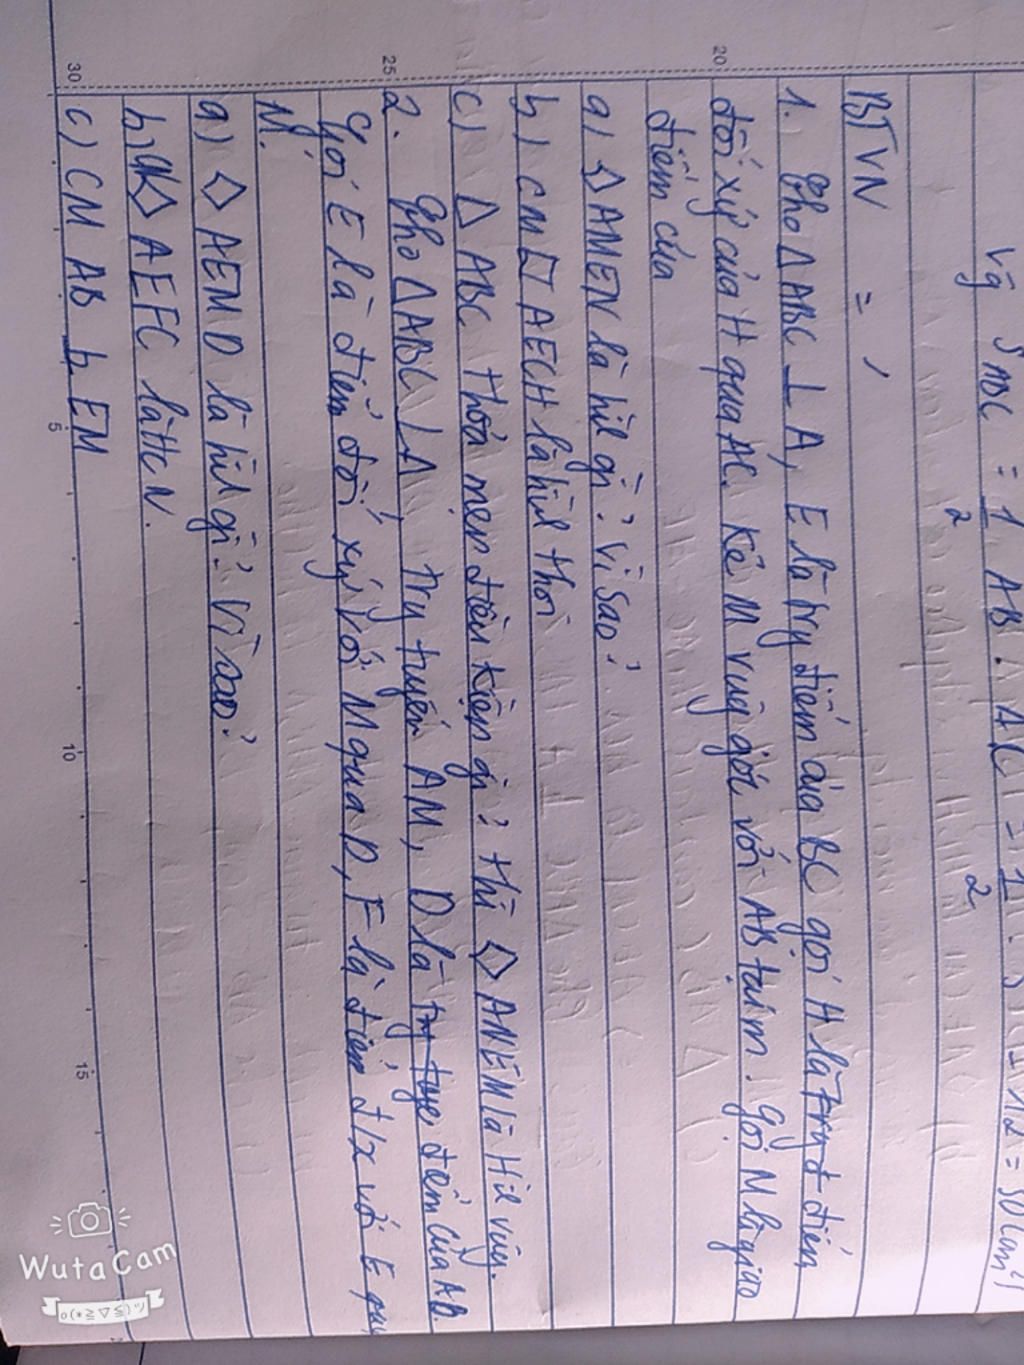 Vg SMBC = 1/2 AB. AC = 1/2 = 30 (cm²)
BTVN
1. Cho △ABC ⊥ A, E là trg điểm của BC gọi H là điểm
đối xứ của H qua AC. Kẻ M vuôg góc với AB tại m. Gọi N là giao
điểm của
a) ◇ AMEN là hìl gì? Vì sao?
b) CM ◇ AECH là hìl thoi
c) △ ABC thỏa mẹn điều kiện gì? thì ◇ ANEM là Hìl vuôg.
2. Cho △ABC ⊥ A, trg tuyến AM, D là trg điểm của AB.
Gọi E là điểm đối xứ với M qua D, F là điểm đ/x với E qua
M.
a) ◇ AEMD là hìl gì? Vì sao?
b) ◇ AEFC là HCN.
c) CM AB ⊥ EM
30
25
20
5
10
15
WutaCam
o(*≧▽≦)ツ